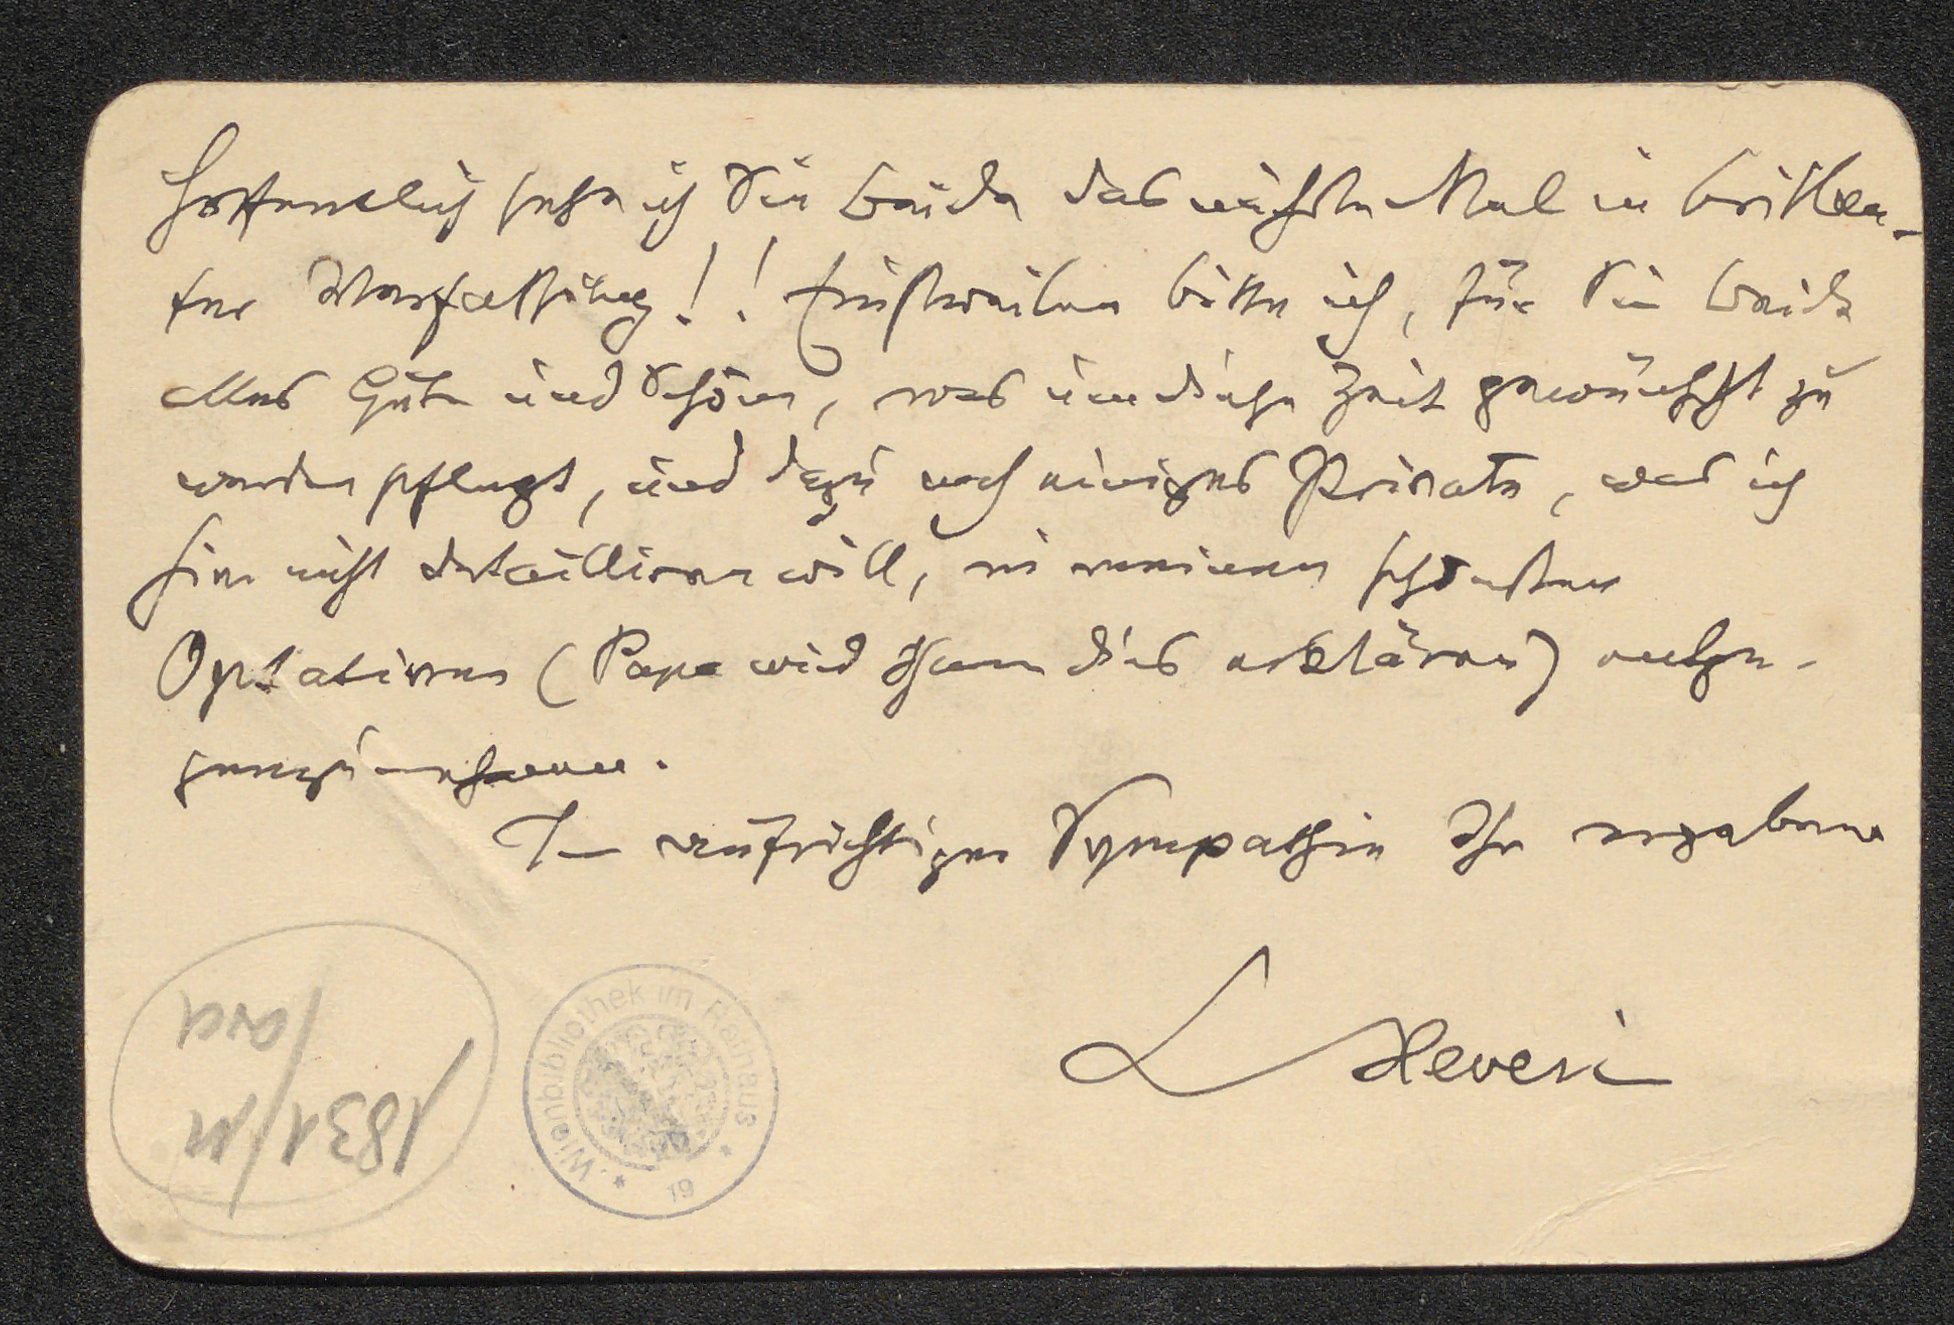 Hoffentlich sehe ich Sie beide das nächste Mal in brillan-
ter Verfassung!! Einstweilen bitte ich, für Sie beide
alles Gute und Schöne, was um diese Zeit gewünscht zu
werden pflegt, und dazu noch einiges Private, was ich
hier nicht detailliren will, in meinen schönsten
Optativen (Papa wird Ihnen dies erklären) entge-
genzunehmen.
In aufrichtiger Sympathie Ihr ergebener
L Hevesi
Wienbibliothek im Rathaus
19
1831/11